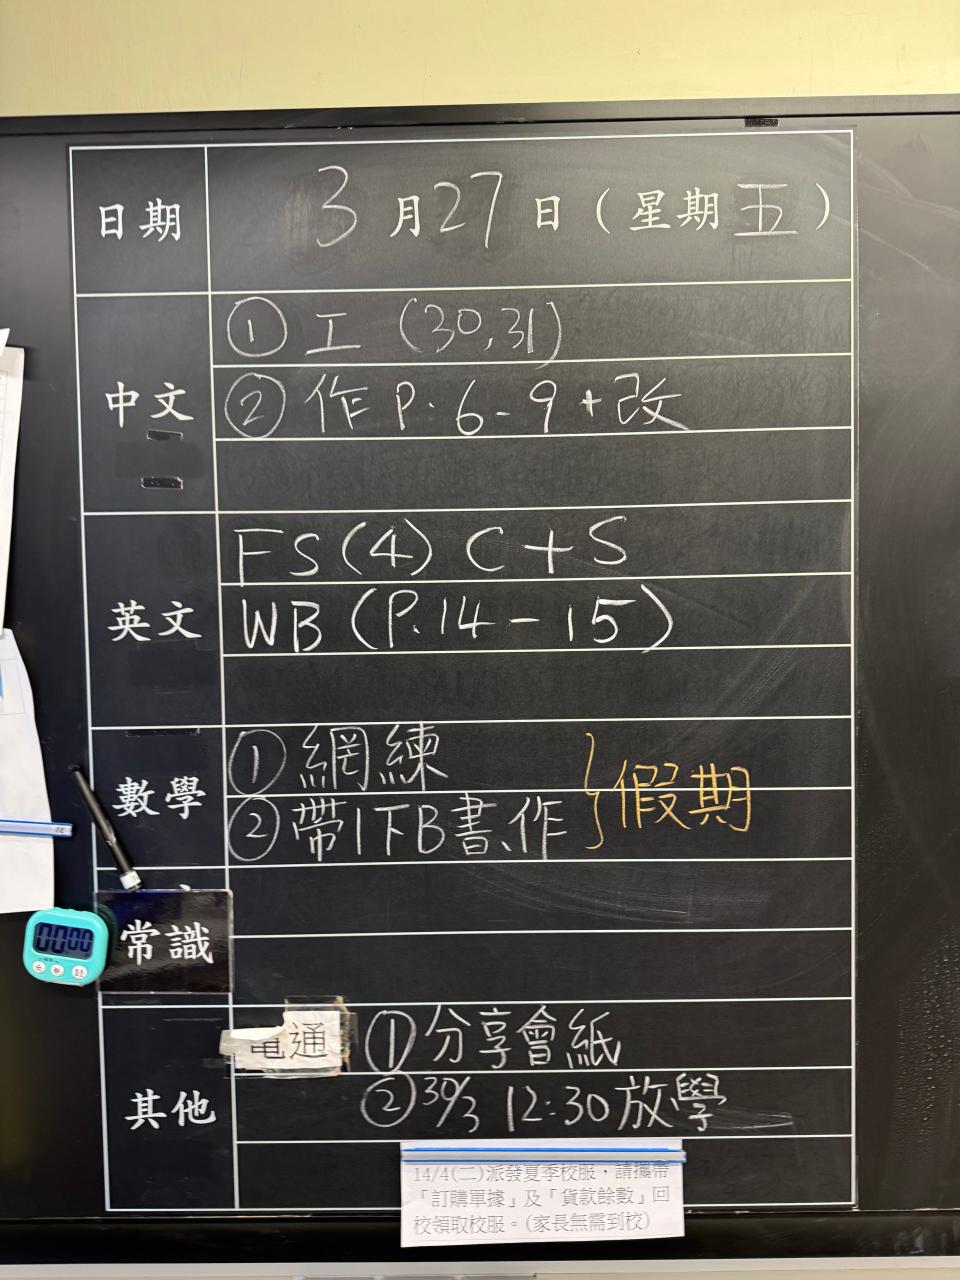 日期 3月27日(星期五)
中文
① 工 (30,31)
② 作 P. 6-9 + 改
英文
FS (4) C + S
WB (P.14 - 15)
數學
① 網練
② 帶1下B書、作
} 假期
常識
其他
電通 ① 分享會紙
② 30/3 12:30 放學
14/4(二)派發夏季校服，請攜帶
「訂購單據」及「貨款餘數」回
校領取校服。(家長無需到校)
00:00